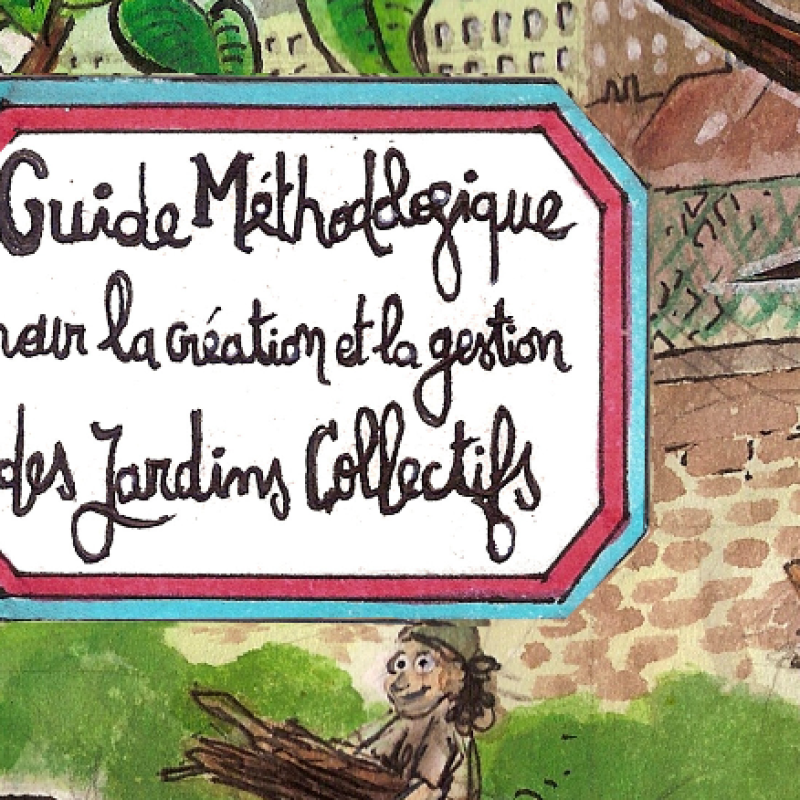 Guide Méthodologique
pour la création et la gestion
des Jardins Collectifs